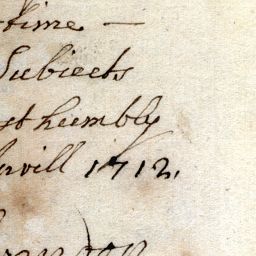 time —
Subiects
st humbly
rvill 1712.